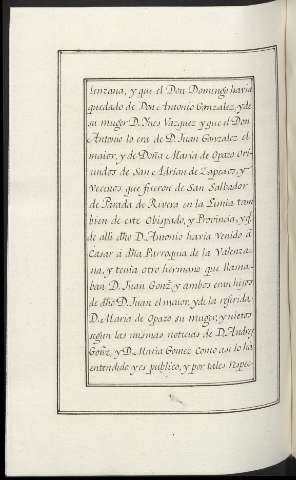 lenzana, y que el Don Domingo havia
quedado de Don Antonio Gonzalez, y de
su muger D. Ynes Vazquez y que el Don
Antonio lo era de D. Juan Gonzalez el
maior, y de Doña Maria de Opazo Ori-
undos de San Adrian de Zapeaos, y
Vecinos que fueron de San Salbador
de Parada de Rivera en la Limia tam
bien de este Obispado, y Provincia, y q.
de alli dho D. Antonio havia venido á
Casar á dha Parroquia de la Valenza-
na, y tenia otro hermano que llama-
ban D. Juan Gonz. y ambos eran hijos
de dho D. Juan el maior, y de la referida
D. Maria de Opazo su muger, y nietos
segun las mismas noticias de D. Andres
Gonz, y D. Maria Gomez como asi lo ha
entendido y es publico, y por tales respec-